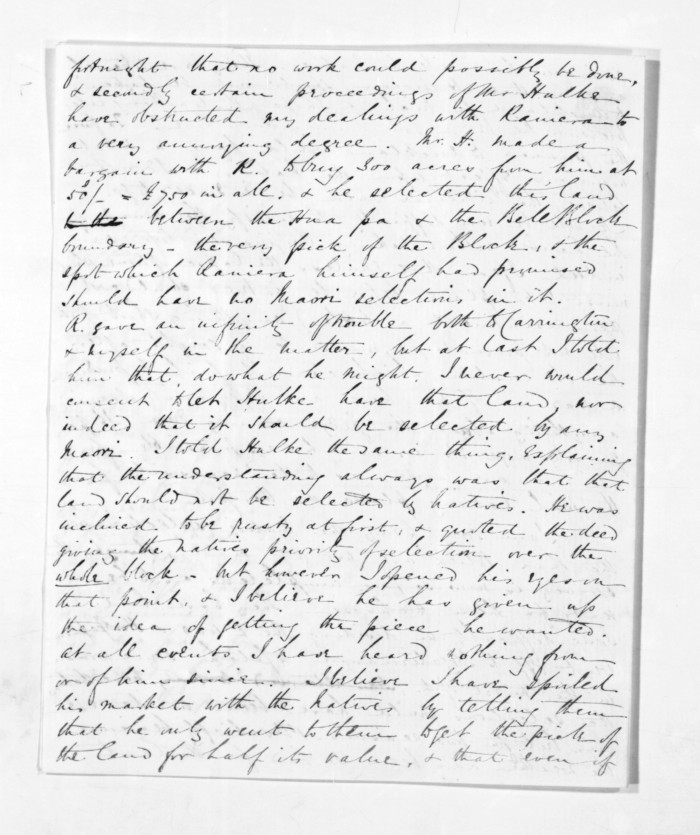 fortnight that no work could possibly be done,
& secondly certain proceedings of Mr Hulke
have obstructed my dealings with Raniera to
a very annoying degree. Mr. H. made a
bargain with R. to buy 300 acres from him at
50/- = £750 in all. & he selected this land
to the between the Hua pa & the Bell Block
boundary - the very pick of the Block, & the
spot which Raniera himself had promised
should have no Maori selections in it.
R. gave an infinity of trouble both to Carrington
& myself in the matter, but at last I told
him that, do what he might, I never would
consent to let Hulke have that land, nor
indeed that it should be selected by any
Maori. I told Hulke the same thing, explaining
that the understanding always was that that
land should not be selected by Natives. He was
inclined to be rusty at first, & quoted the deed
giving the natives priority of selection over the
whole block - but however I opened his eyes on
that point, & I believe he has given up
the idea of getting the piece he wanted.
at all events I have heard nothing from
or of him since. I believe I have spoiled
his market with the Natives by telling them
that he only went to them to get the pick of
the land for half its value, & that even if